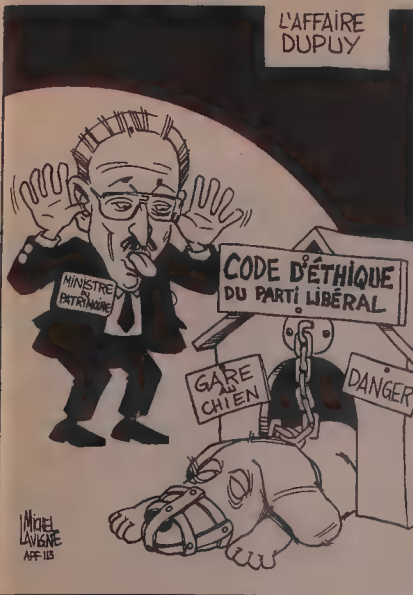 L'AFFAIRE
DUPUY
MINISTRE
DU
PATRIMOINE
CODE D'ÉTHIQUE
DU PARTI LIBÉRAL
GARE
AU
CHIEN
DANGER
MICHEL
LAVIGNE
APF 113